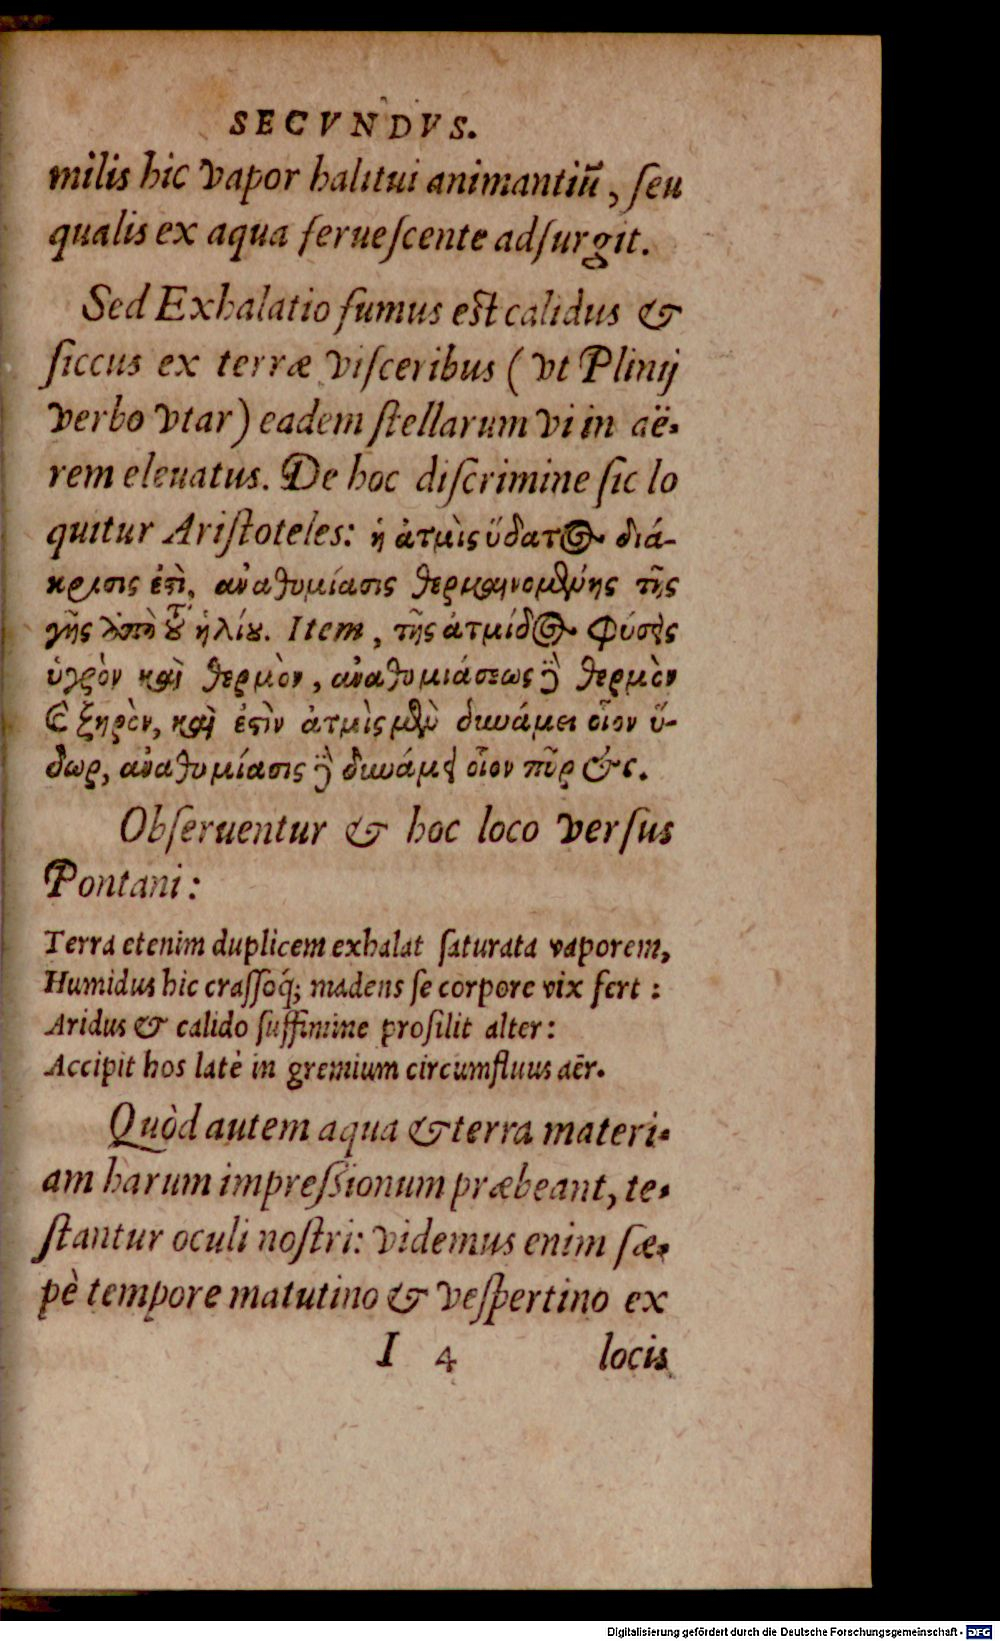 SECVNDVS.
milis hic vapor halitui animantiū, ſeu
qualis ex aqua ferueſcente adſurgit.
Sed Exhalatio fumus eſt calidus &
ſiccus ex terræ viſceribus (vt Plinij
verbo vtar) eadem ſtellarum vi in aë-
rem eleuatus. De hoc diſcrimine ſic lo
quitur Ariſtoteles: ἡ ἀτμὶς ὕδατος διά-
κρισις ἐςὶ, ἀναθυμίασις θερμαινομένης τῆς
γῆς ὑπὸ τȣ͂ ἡλίȣ. Item, τῆς ἀτμίδος φύσις
ὑγρὸν καὶ θερμὸν, ἀναθυμιάσεως δὲ θερμὸν
καὶ ξηρὸν, καὶ ἐςὶν ἀτμὶς μὲν δυνάμει οἷον ὕ-
δωρ, ἀναθυμίασις δὲ δυνάμει οἷον πῦρ &c.
Obſeruentur & hoc loco verſus
Pontani:
Terra etenim duplicem exhalat ſaturata vaporem,
Humidus hic craſſoq́; madens ſe corpore vix fert :
Aridus & calido ſuffimine proſilit alter:
Accipit hos latè in gremium circumfluus aër.
Quòd autem aqua & terra materi-
am harum impreſſionum præbeant, te-
ſtantur oculi noſtri: videmus enim ſæ-
pè tempore matutino & veſpertino ex
I 4 locis
Digitalisierung gefördert durch die Deutsche Forschungsgemeinschaft - DFG